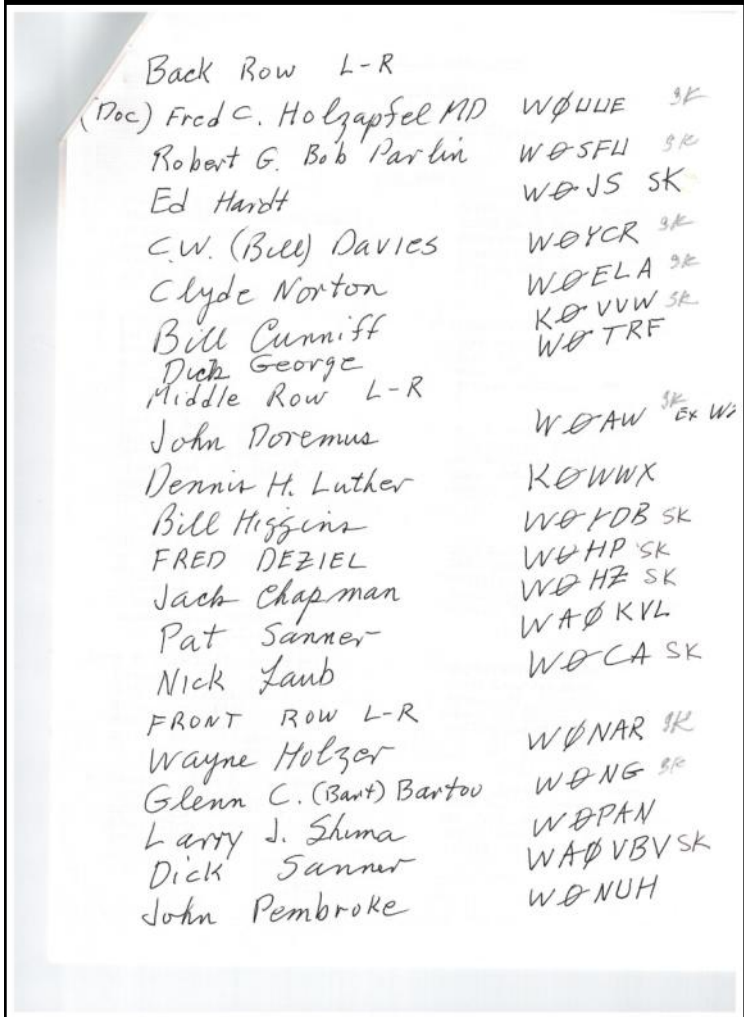 Back Row L-R
(Doc) Fred C. Holzapfel MD WØUUE SK
Robert G. Bob Parlin WØSFU SK
Ed Hardt WØJS SK
C.W. (Bill) Davies WØYCR SK
Clyde Norton WØELA SK
Bill Cunniff KØVVW SK
Dick George WØTRF
Middle Row L-R
John Doremus WØAW SK Ex
Dennis H. Luther KØWWX
Bill Higgins WØYDB SK
FRED DEZIEL WØHP SK
Jack Chapman WØHZ SK
Pat Sanner WAØKVL
Nick Laub WØCA SK
FRONT ROW L-R
Wayne Holzer WØNAR SK
Glenn C. (Bart) Bartov WØNG SK
Larry J. Shima WØPAN
Dick Sanner WAØVBV SK
John Pembroke WØNUH